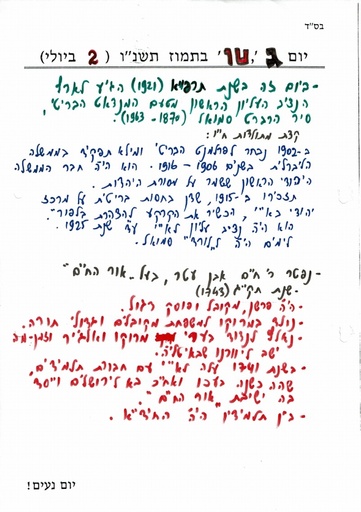 בס"ד
יום ב', טו' בתמוז תשנ"ו ( 2 ביולי)
- ביום זה בשנת תרפ"א (1921) הגיע לארץ
הנציב העליון הראשון מטעם המנדאט הבריטי,
סיר הרברט סמואל (1870 - 1963).
קצת מתולדות חייו:
ב-1902 נבחר לפרלמנט הבריטי ומילא תפקיד בממשלה
הליברלית בשנים 1906 - 1916. הוא היה חבר הממשלה
היהודי הראשון ששמר על מסורת היהדות.
תזכירו ב-1915, שדן בחסות בריטית על מרכז
יהודי בא"י, הכשיר את הקרקע להצהרת בלפור.
הוא היה נציב עליון לא"י עד שנת 1925.
לימים היה ל"לורד" סמואל.
- נפטר ר' חיים אבן עטר, בעל "אור החיים"
- שנת תק"ג (1743)
- היה פרשן, מקובל ופוסק רגול.
- נולד במרוקו למשפחת מקובלים וגדולי תורה.
- נאלץ לנדוד בערי מרוקו ואלג'יר וזמן-מה
ישב ליוורנו שבאיטליה.
- בשנת 1740 עלה לא"י עם חבורת תלמידים,
שהה כשנה בעכו ואח"כ בא לירושלים וייסד
בה ישיבת "אור החיים".
- בין תלמידיו היה החיד"א.
יום נעים!